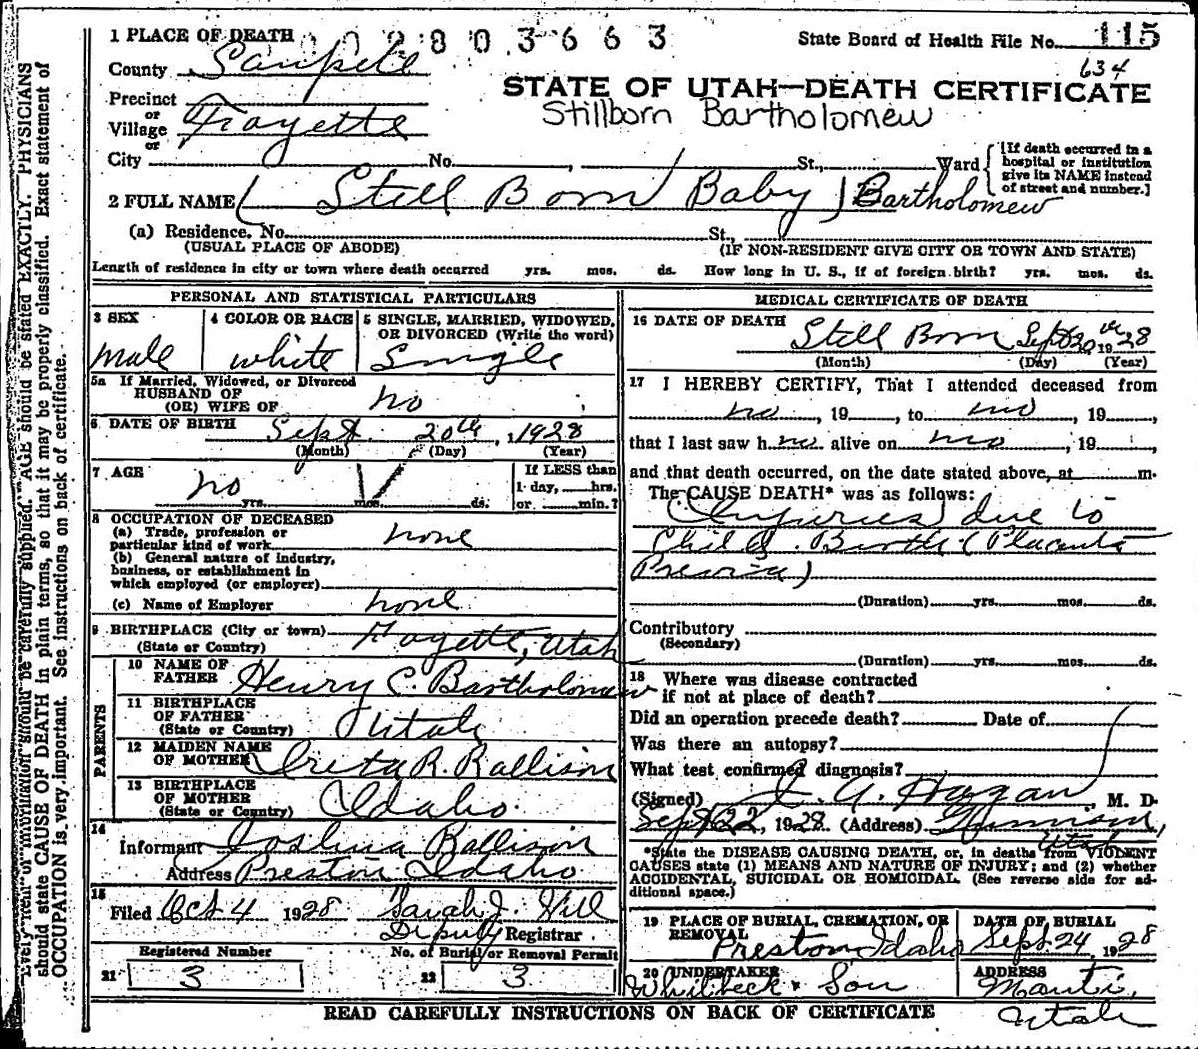 1 PLACE OF DEATH 0 0 2 8 0 3 6 6 3 State Board of Health File No. 115
County Sanpete 634
STATE OF UTAH—DEATH CERTIFICATE
Precinct
or
Village Fayette Stillborn Bartholomew
or
City No. , St., Ward
[If death occurred in a hospital or institution give its NAME instead of street and number.]
2 FULL NAME ( Still Born Baby ) Bartholomew
(a) Residence. No. St.,
(USUAL PLACE OF ABODE) (IF NON-RESIDENT GIVE CITY OR TOWN AND STATE)
Length of residence in city or town where death occurred yrs. mos. ds. How long in U. S., if of foreign birth? yrs. mos. ds.
PERSONAL AND STATISTICAL PARTICULARS
3 SEX 4 COLOR OR RACE 5 SINGLE, MARRIED, WIDOWED, OR DIVORCED (Write the word)
Male white Single
5a If Married, Widowed, or Divorced
HUSBAND OF
(OR) WIFE OF no
6 DATE OF BIRTH Sept. 20th, 1928
(Month) (Day) (Year)
7 AGE no yrs. mos. ds. If LESS than 1 day, hrs. or min.?
8 OCCUPATION OF DECEASED
(a) Trade, profession or
particular kind of work none
(b) General nature of industry,
business, or establishment in
which employed (or employer)
(c) Name of Employer none
9 BIRTHPLACE (City or town) Fayette, Utah
(State or Country)
PARENTS
10 NAME OF
FATHER Henry C. Bartholomew
11 BIRTHPLACE
OF FATHER Utah
(State or Country)
12 MAIDEN NAME
OF MOTHER Creta R. Rallison
13 BIRTHPLACE
OF MOTHER Idaho.
(State or Country)
14
Informant Joshua Rallison
Address Preston Idaho
15
Filed Oct 4 1928 Sarah J. Hill
Deputy Registrar
Registered Number No. of Burial or Removal Permit
21 3 22 3
MEDICAL CERTIFICATE OF DEATH
16 DATE OF DEATH
Still Born Sept 20th 1928
(Month) (Day) (Year)
17 I HEREBY CERTIFY, That I attended deceased from
no, 19 , to no, 19 ,
that I last saw h no alive on no, 19 ,
and that death occurred, on the date stated above, at m.
The CAUSE DEATH* was as follows:
(Injuries) due to
Child Birth (Placenta
Previa)
(Duration) yrs. mos. ds.
Contributory
(Secondary)
(Duration) yrs. mos. ds.
18 Where was disease contracted
if not at place of death?
Did an operation precede death? Date of
Was there an autopsy?
What test confirmed diagnosis?
(Signed) A. Hagan, M. D.
Sept 22, 1928. (Address) Gunnison,
Utah
*State the DISEASE CAUSING DEATH, or, in deaths from VIOLENT
CAUSES state (1) MEANS AND NATURE OF INJURY; and (2) whether
ACCIDENTAL, SUICIDAL OR HOMICIDAL. (See reverse side for additional space.)
19 PLACE OF BURIAL, CREMATION, OR DATE OF BURIAL
REMOVAL Preston, Idaho Sept. 24, 1928
20 UNDERTAKER ADDRESS
& Son Manti,
Utah
READ CAREFULLY INSTRUCTIONS ON BACK OF CERTIFICATE
should be carefully supplied. AGE should be stated EXACTLY. PHYSICIANS
should state CAUSE OF DEATH in plain terms, so that it may be properly classified. Exact statement of
OCCUPATION is very important. See instructions on back of certificate.